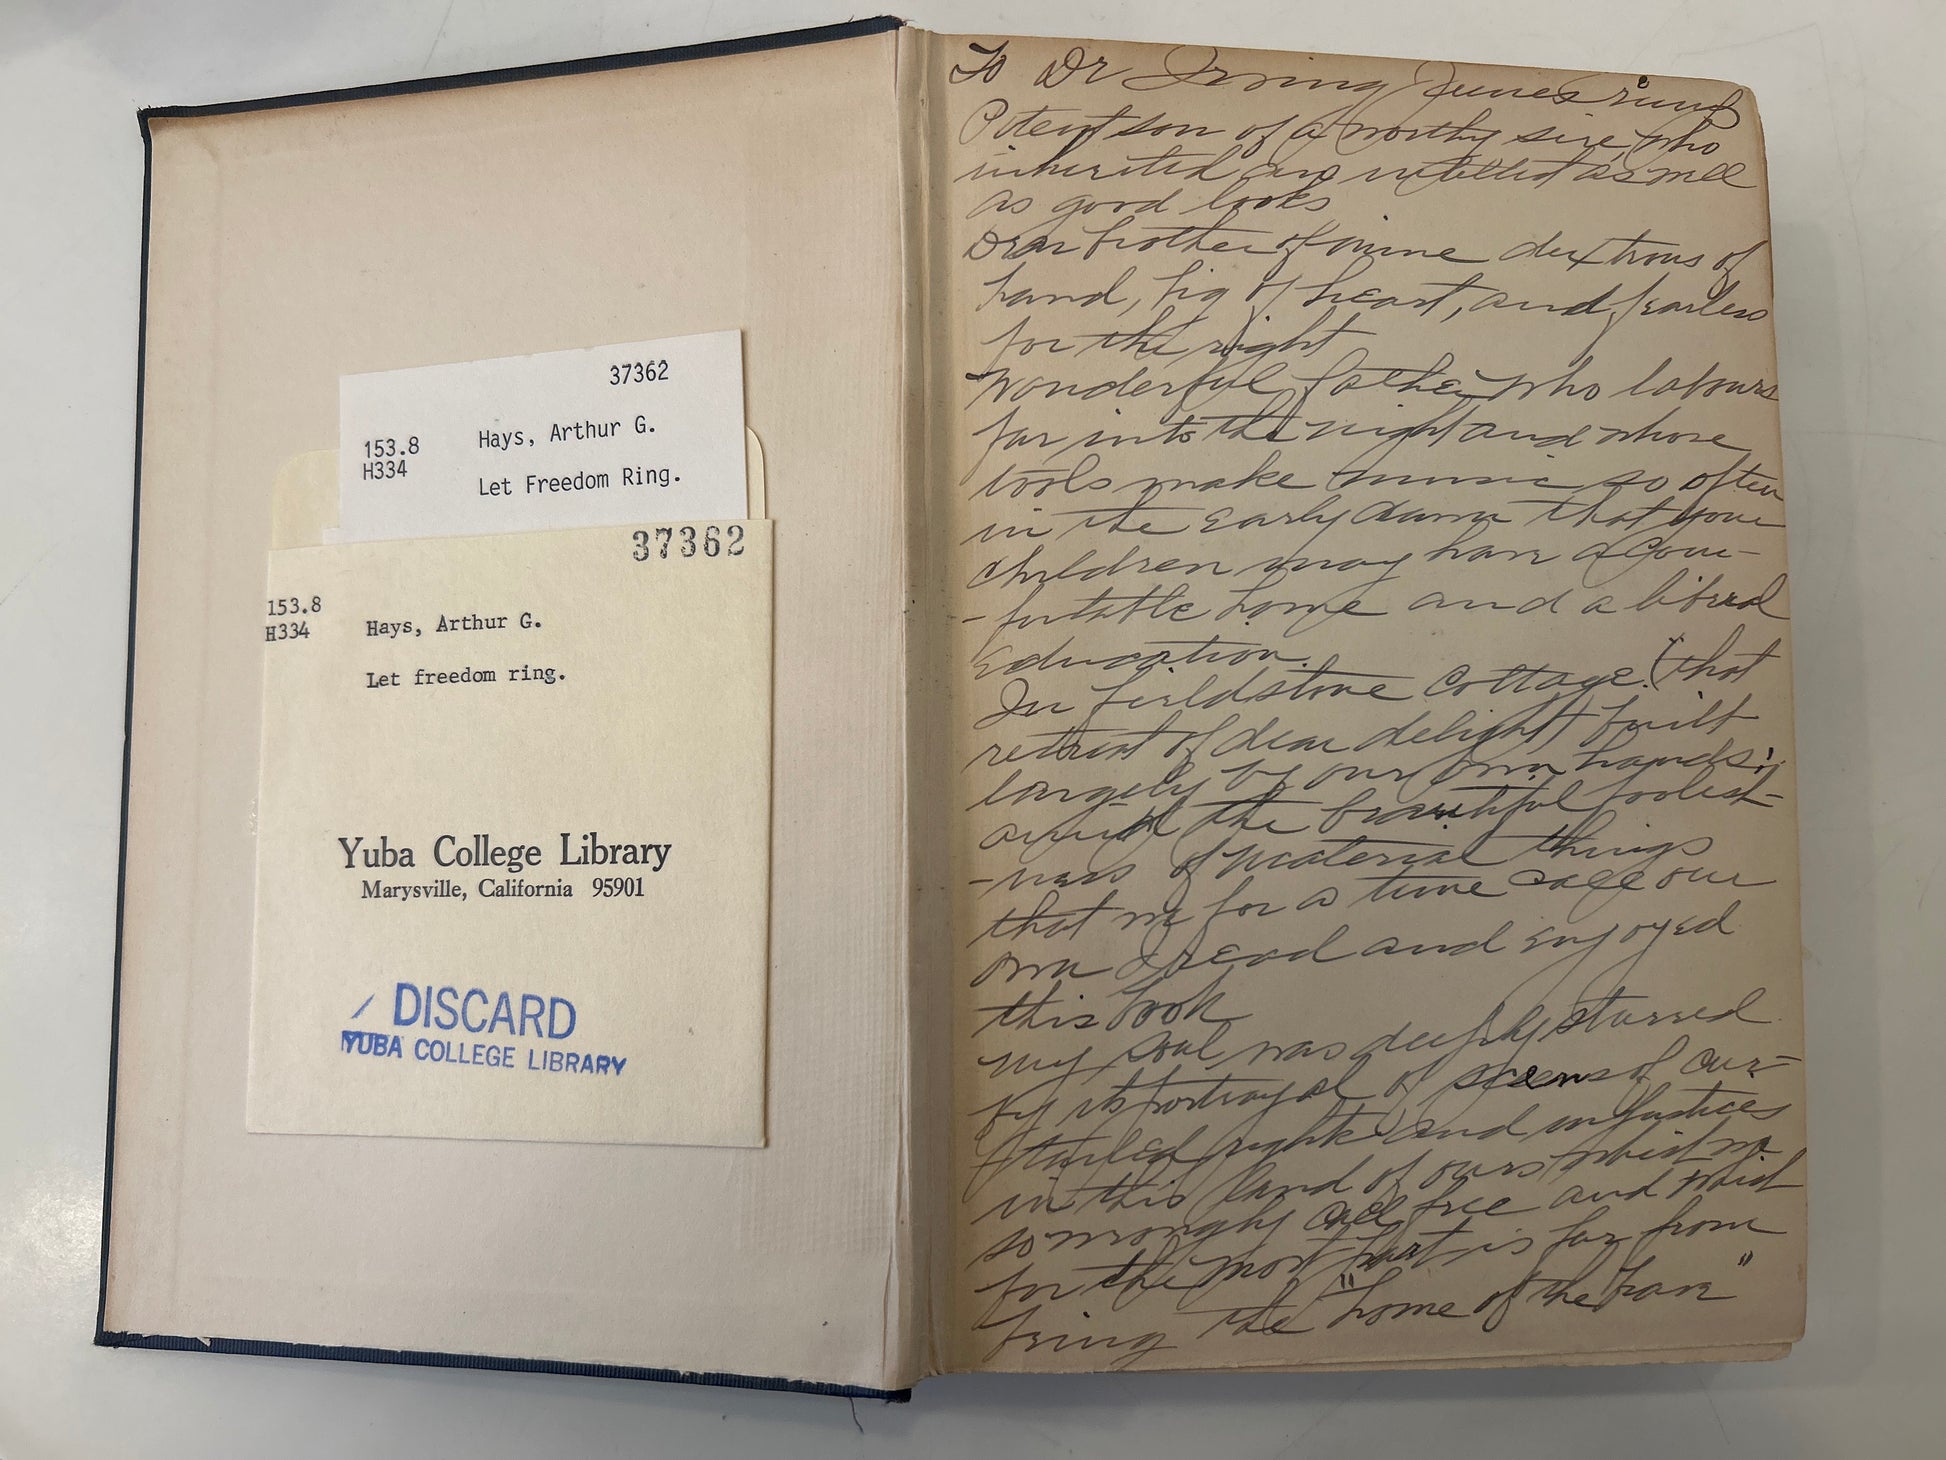 37362
153.8 Hays, Arthur G.
H334
Let Freedom Ring.
37362
153.8
H334 Hays, Arthur G.
Let freedom ring.
Yuba College Library
Marysville, California 95901
DISCARD
YUBA COLLEGE LIBRARY
To Dr Irving
Potent son of a worthy sire, who
inherited an intellect as well
as good looks
Dear brother of mine dextrous of
hand, big of heart, and fearless
for the right
Wonderful father who labours
far into the night and whose
tools make music so often
in the early dawn that your
children may have a com-
-fortable home and a liberal
education.
In fieldstone cottage (that
retreat of dear delight built
largely by our own hands;
amid the beautiful foolish-
-ness of material things
that we for a time call our
own I read and enjoyed
this book
my soul was deeply stirred
by its portrayal of scenes of cur-
tailed rights and injustices
in this land of ours which we
so wrongly call free and which
for the most part is far from
being the "home of the brave"